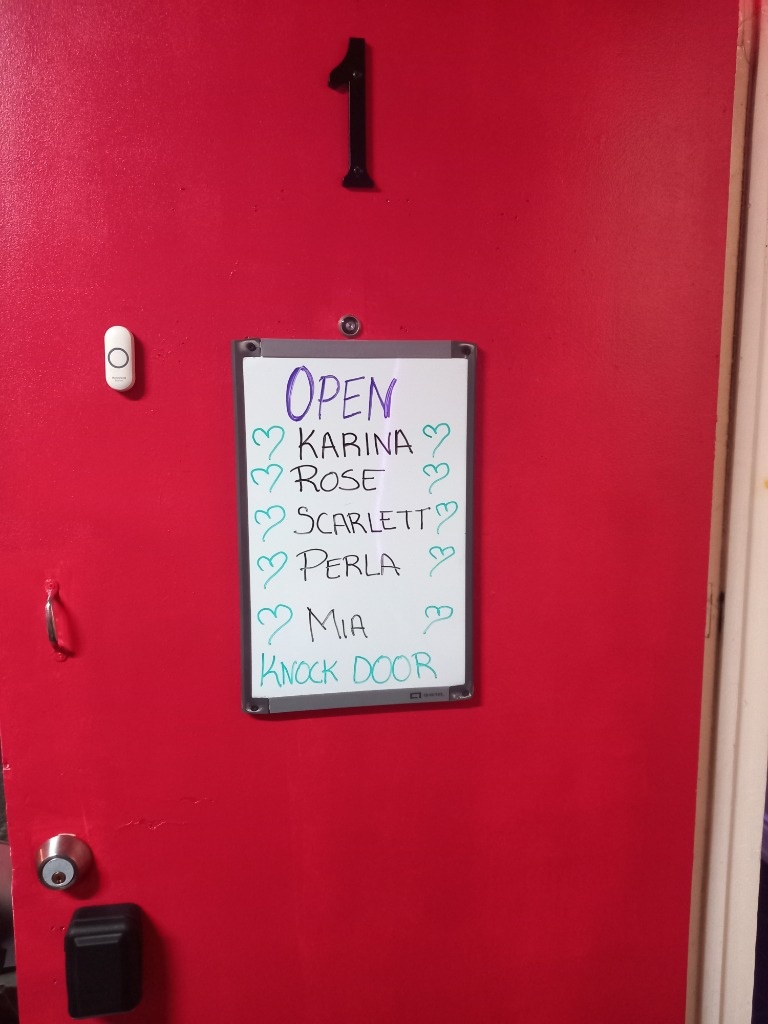 1
OPEN
KARINA
ROSE
SCARLETT
PERLA
MIA
KNOCK DOOR